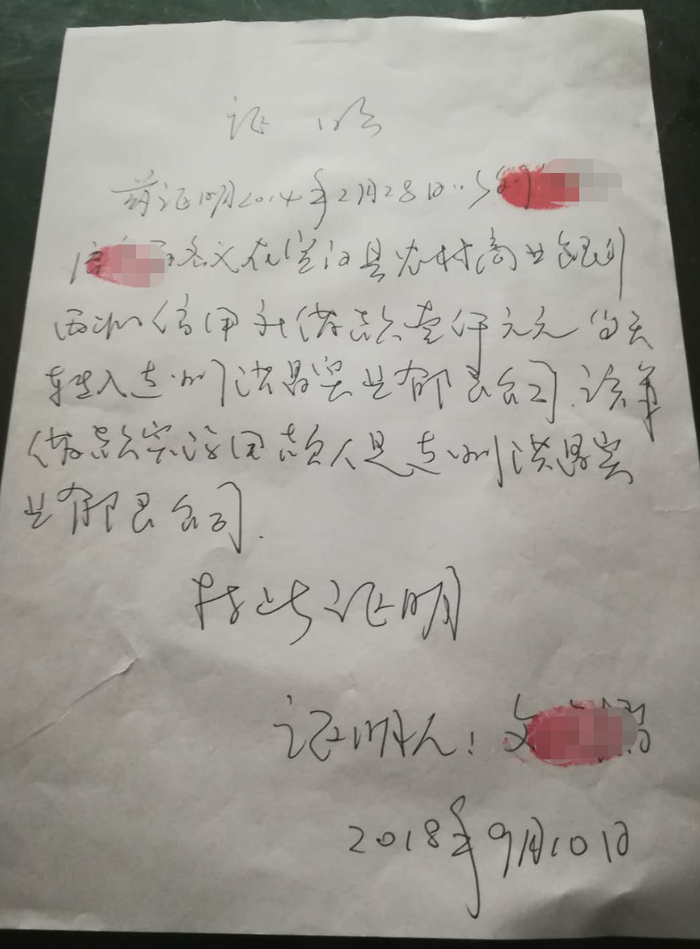 证明
兹证明2014年2月28日
名义在宣汉县农村商业银行
西北信用社贷款壹仟万元 当天
转入达州洪昌实业有限公司.该笔
贷款实际用款人是达州洪昌实
业有限公司.
特此证明
证明人：文
2018年9月10日